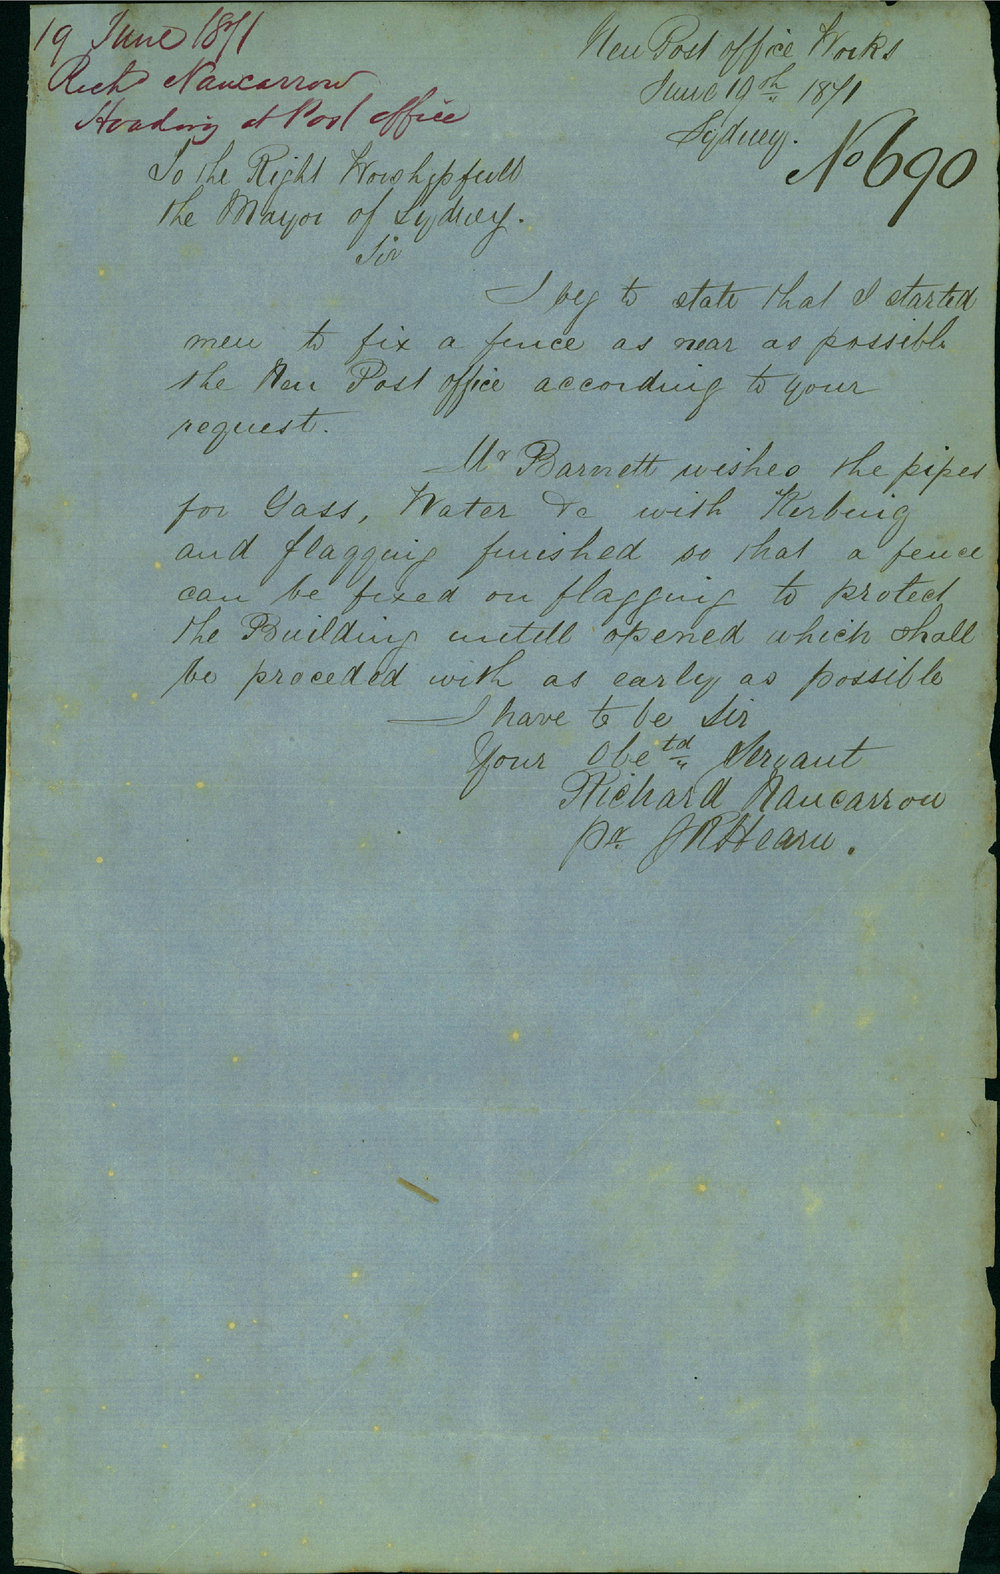 19 June 1871
Richd Nancarrow
Hoading at Post office
New Post office Works
June 19th 1871
Sydney.
No 690
To the Right Worshipfull
the Mayor of Sydney.
Sir
I beg to state that I started
men to fix a fence as near as possible
the New Post office according to your
request.
Mr Barnett wishes the pipes
for Gass, Water &c with Kerbing
and flagging finished so that a fence
can be fixed on flagging to protect
the Building untill opened which shall
be proceded with as early as possible
I have to be Sir
Your Obetd Servant
Richard Nancarrow
pr J R Hearn.